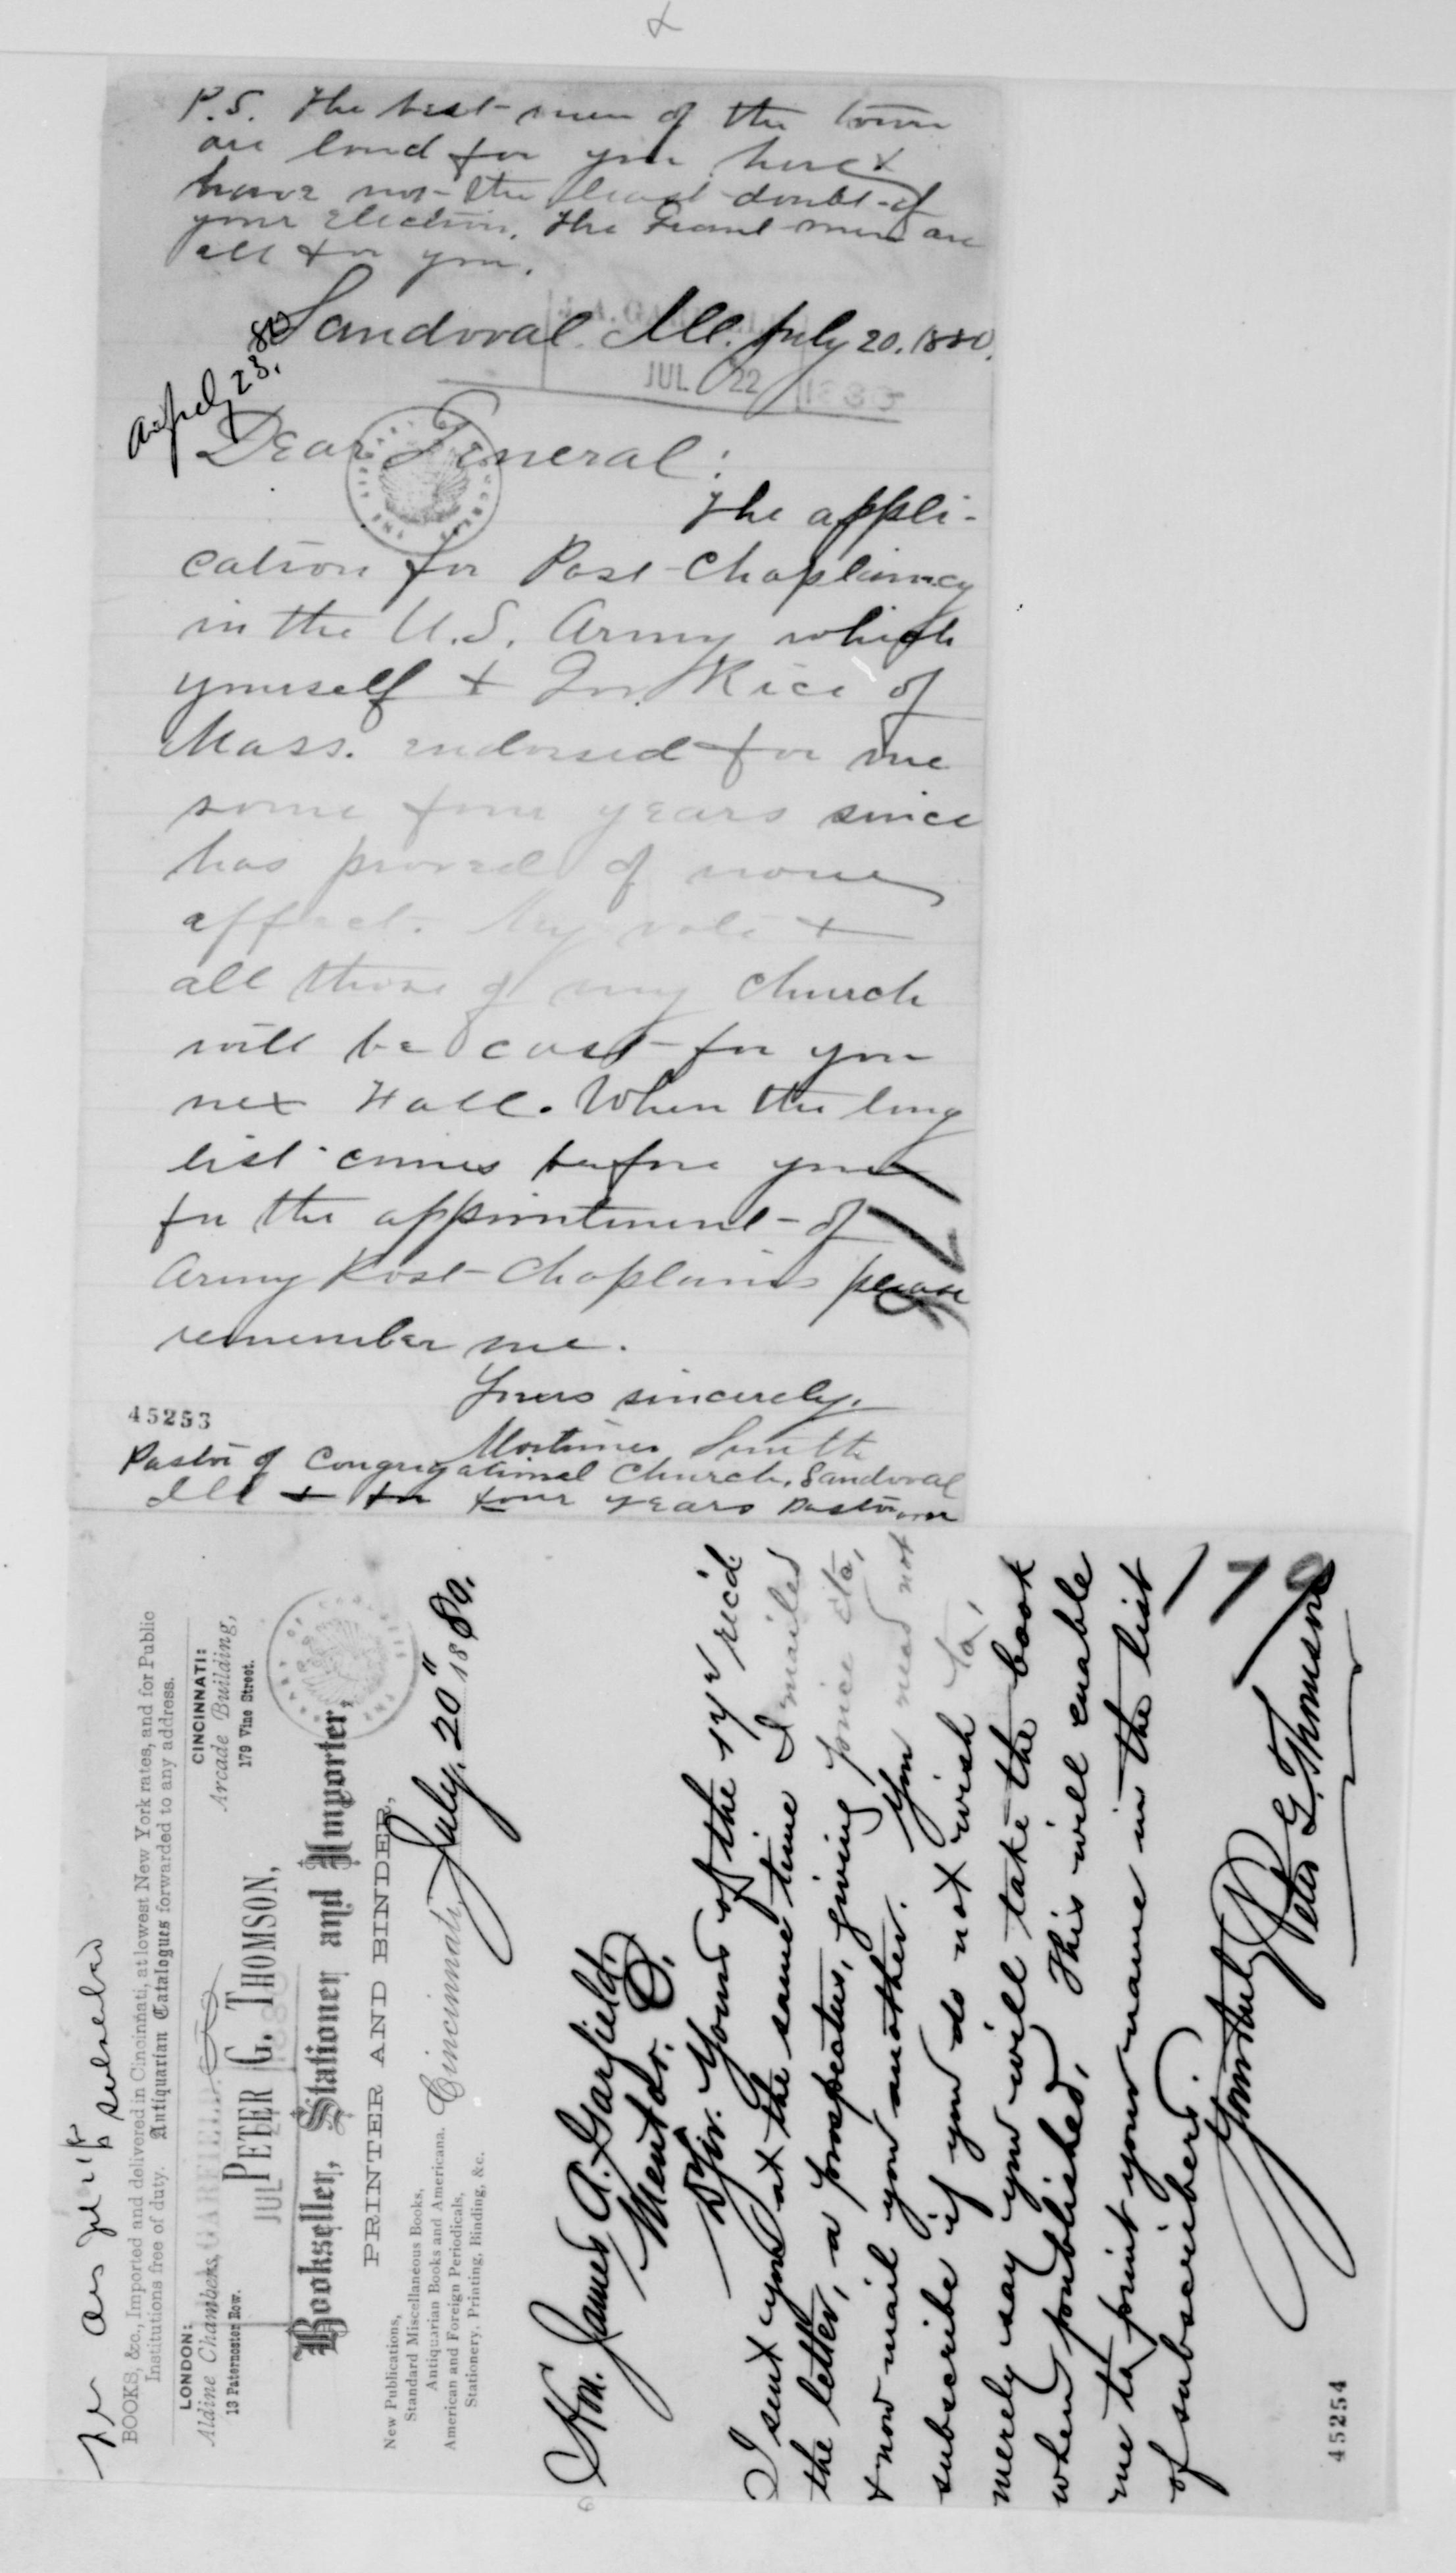 P.S. The best men of the town
are loud for you here &
have not the least doubt of
your election. The Grant men are
all for you.
Sandoval Ill. July 20. 1880.
J. A. GARFIELD
JUL 22 1880
July 23. 80
Dear General:
The appli-
cation for Post Chaplaincy
in the U.S. Army which
yourself & Gov. Rice of
Mass. endorsed for me
some four years since
has proved of none
affect. My vote &
all those of my church
will be cast for you
nex Fall. When the long
list comes before you
for the appointment of
Army Post Chaplains please
remember me.
Yours sincerely,
Mortimer Smith
45253
Pastor of Congregational Church, Sandoval
Ill & for four years Pastor
BOOKS, &c., Imported and delivered in Cincinnati, at lowest New York rates, and for Public
Institutions free of duty. Antiquarian Catalogues forwarded to any address.
LONDON:
Aldine Chambers,
13 Paternoster Row.
CINCINNATI:
Arcade Building,
179 Vine Street.
GARFIELD
JUL 22 1880
PETER G. THOMSON,
Bookseller, Stationer and Importer,
PRINTER AND BINDER,
New Publications,
Standard Miscellaneous Books,
Antiquarian Books and Americana.
American and Foreign Periodicals,
Stationery, Printing, Binding, &c.
Cincinnati, July, 20" 1880.
Hon. James A. Garfield,
Mentor. O.
Dr Sir. Yours of the 17" rec'd.
I sent you at the same time I mailed
the letter, a prospectus, giving price etc,
& now mail you another. You need not
subscribe if you do not wish to,
merely say you will take the book
when published, This will enable
me to print your name in the list
of subscribers.
Yours truly
Peter G. Thomson
179
45254